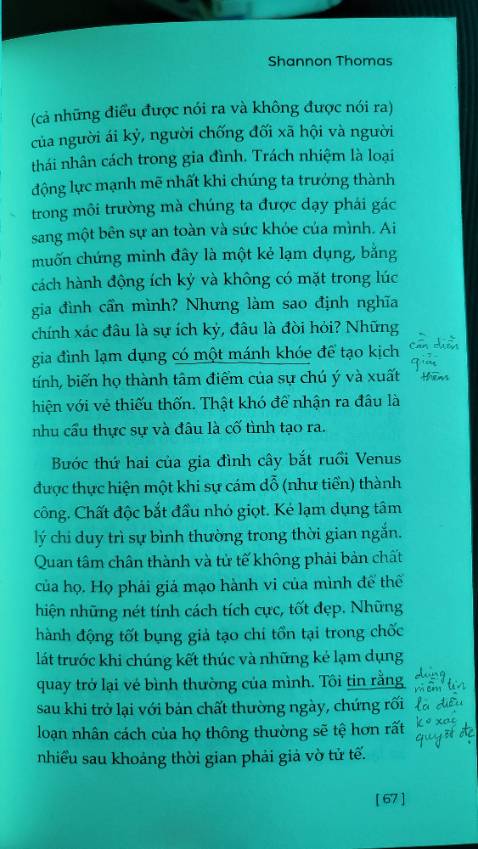 Shannon Thomas
(cả những điều được nói ra và không được nói ra)
của người ái kỷ, người chống đối xã hội và người
thái nhân cách trong gia đình. Trách nhiệm là loại
động lực mạnh mẽ nhất khi chúng ta trưởng thành
trong môi trường mà chúng ta được dạy phải gác
sang một bên sự an toàn và sức khỏe của mình. Ai
muốn chứng minh đây là một kẻ lạm dụng, bằng
cách hành động ích kỷ và không có mặt trong lúc
gia đình cần mình? Nhưng làm sao định nghĩa
chính xác đâu là sự ích kỷ, đâu là đòi hỏi? Những
gia đình lạm dụng có một mánh khóe để tạo kịch
tính, biến họ thành tâm điểm của sự chú ý và xuất
hiện với vẻ thiếu thốn. Thật khó để nhận ra đâu là
nhu cầu thực sự và đâu là cố tình tạo ra.
cần diễn
giải
thêm
Bước thứ hai của gia đình cây bắt ruồi Venus
được thực hiện một khi sự cám dỗ (như tiền) thành
công. Chất độc bắt đầu nhỏ giọt. Kẻ lạm dụng tâm
lý chỉ duy trì sự bình thường trong thời gian ngắn.
Quan tâm chân thành và tử tế không phải bản chất
của họ. Họ phải giả mạo hành vi của mình để thể
hiện những nét tính cách tích cực, tốt đẹp. Những
hành động tốt bụng giả tạo chỉ tồn tại trong chốc
lát trước khi chúng kết thúc và những kẻ lạm dụng
quay trở lại vẻ bình thường của mình. Tôi tin rằng
sau khi trở lại với bản chất thường ngày, chứng rối
loạn nhân cách của họ thông thường sẽ tệ hơn rất
nhiều sau khoảng thời gian phải giả vờ tử tế.
dùng
niềm tin
là điều
ko xác
quyết đc
[ 67 ]